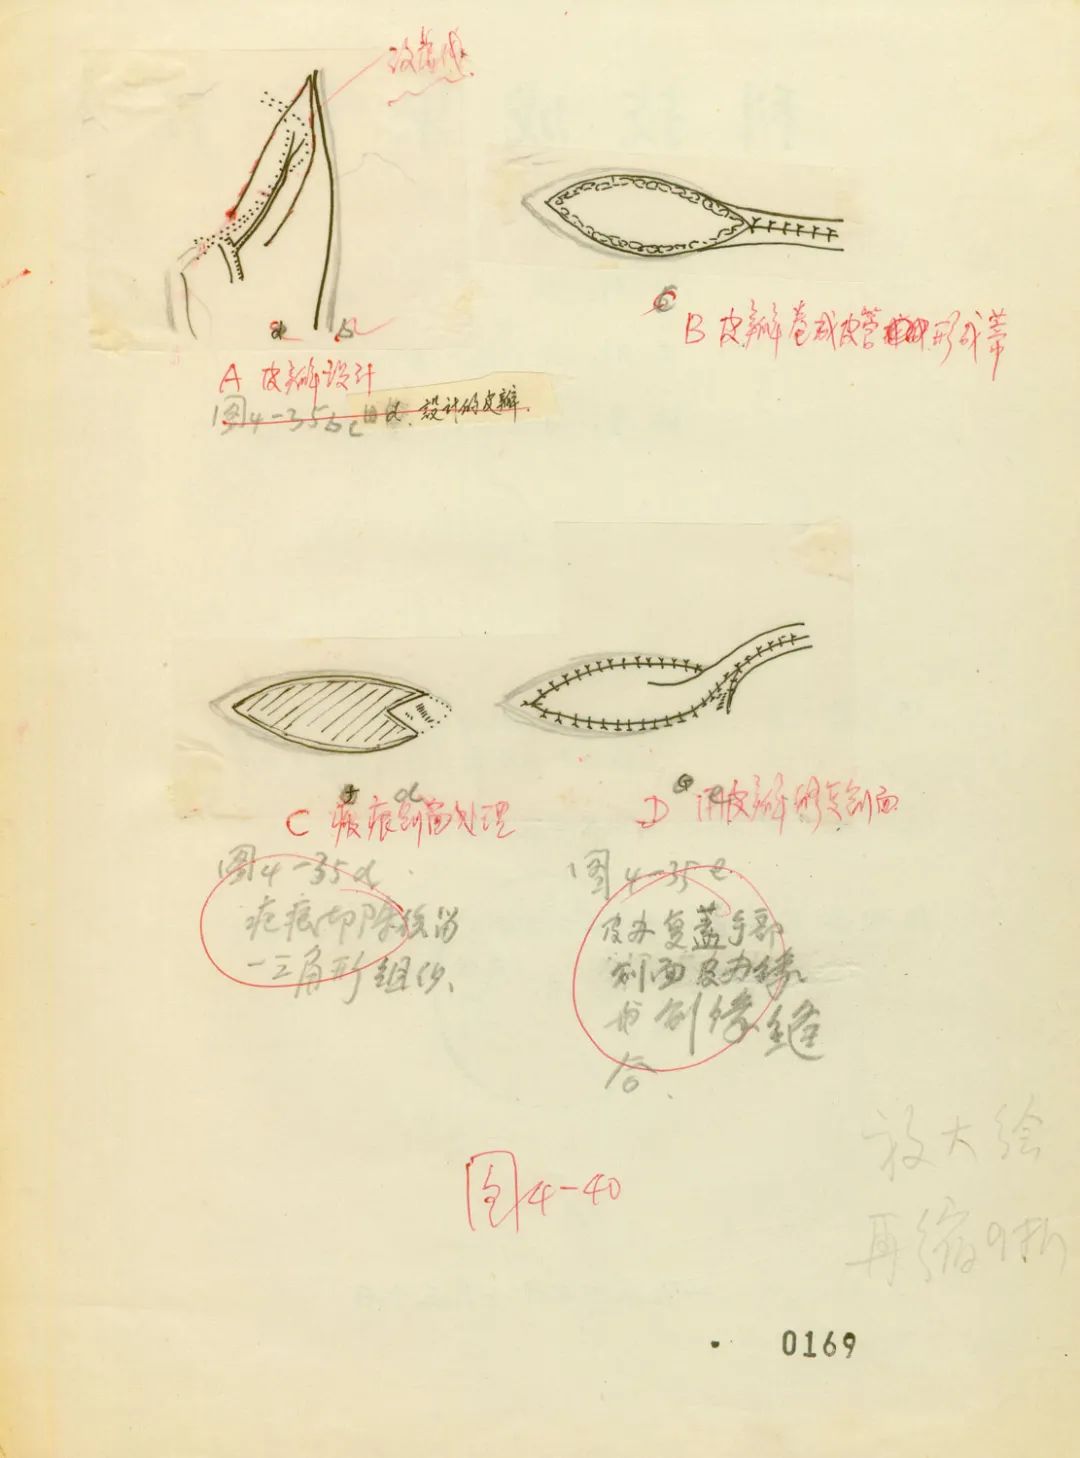 改虚线
B 皮瓣卷成皮管形成蒂
A 皮瓣设计
图4-35b c d. 設计的皮瓣.
C 瘢痕创面处理
D 用皮瓣修复创面
图4-35d
疤痕切除後留
一三角形组织、
图4-35e
皮办复盖手部
创面皮办缘
与创缘缝
合.
图4-40
放大绘
再缩9折
0169